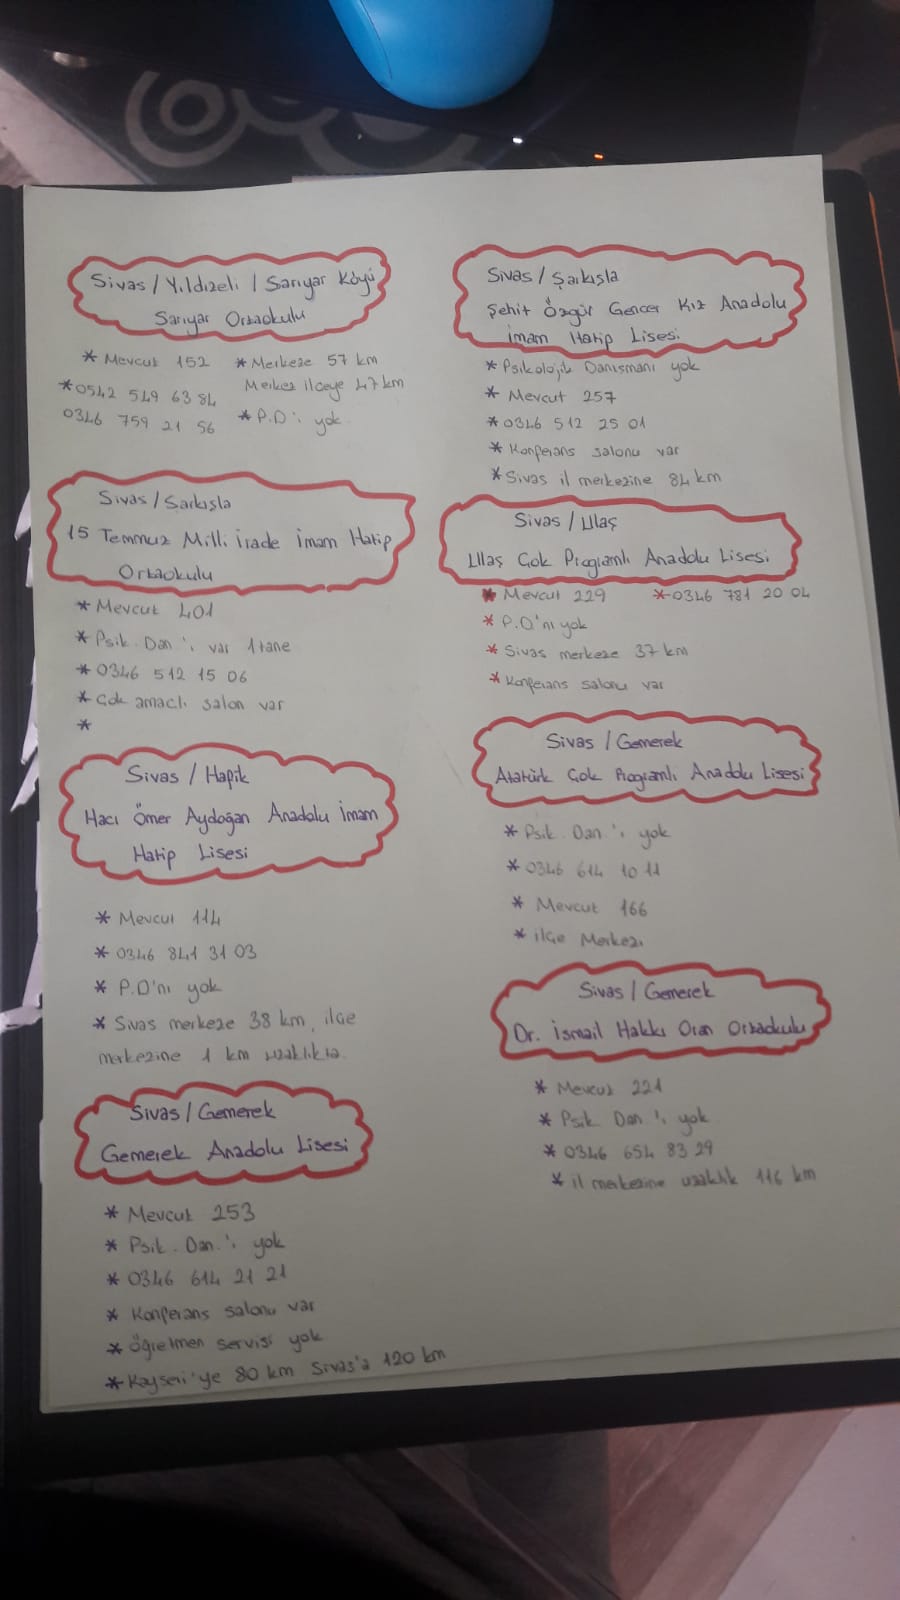 Sivas / Yıldızeli / Sarıyar Köyü
Sarıyar Ortaokulu
* Mevcut 152
* 0542 549 63 84
0346 759 21 56
* Merkeze 57 km
Merkez ilçeye 47 km
* P.D'ı yok
Sivas / Şarkışla
15 Temmuz Milli irade imam Hatip
Ortaokulu
* Mevcut 401
* Psik. Dan.'ı var 1 tane
* 0346 512 15 06
* Çok amaçlı salon var
*
Sivas / Hafik
Hacı Ömer Aydoğan Anadolu imam
Hatip Lisesi
* Mevcut 114
* 0346 841 31 03
* P.D'nı yok
* Sivas merkeze 38 km, ilçe
merkezine 1 km uzaklıkta.
Sivas / Gemerek
Gemerek Anadolu Lisesi
* Mevcut 253
* Psik. Dan.'ı yok
* 0346 614 21 21
* Konferans salonu var
* öğretmen servisi yok
* Kayseri'ye 80 km Sivas'a 120 km
Sivas / Şarkışla
Şehit Özgür Gencer Kız Anadolu
imam Hatip Lisesi
* Psikolojik Danışmanı yok
* Mevcut 257
* 0346 512 25 01
* Konferans salonu var
* Sivas il merkezine 84 km
Sivas / Ulaş
Ulaş Çok Programlı Anadolu Lisesi
* Mevcut 229 * 0346 781 20 04
* P.D'nı yok
* Sivas merkeze 37 km
* Konferans salonu var
Sivas / Gemerek
Atatürk Çok Programlı Anadolu Lisesi
* Psik. Dan.'ı yok
* 0346 614 10 11
* Mevcut 166
* ilçe Merkezi
Sivas / Gemerek
Dr. ismail Hakkı Ozan Ortaokulu
* Mevcut 221
* Psik. Dan.'ı yok
* 0346 654 83 29
* il merkezine uzaklık 116 km